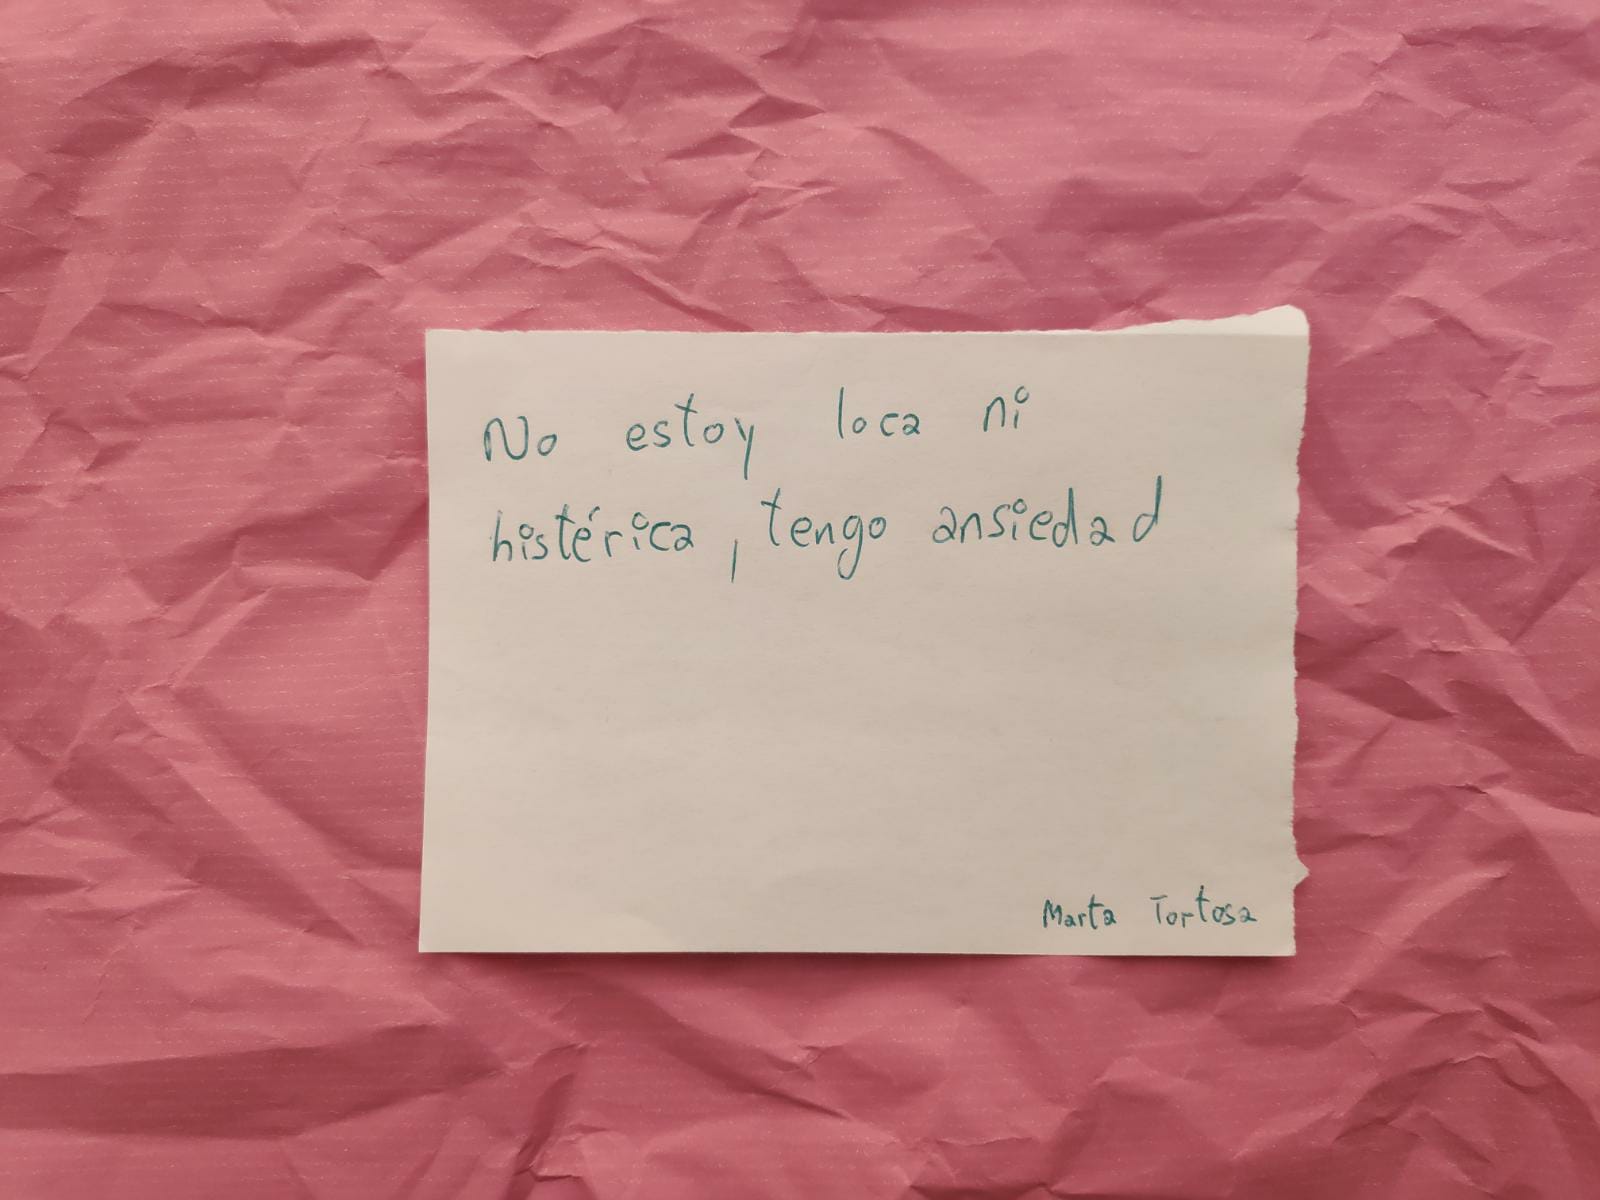 No estoy loca ni
histérica, tengo ansiedad
Marta Tortosa